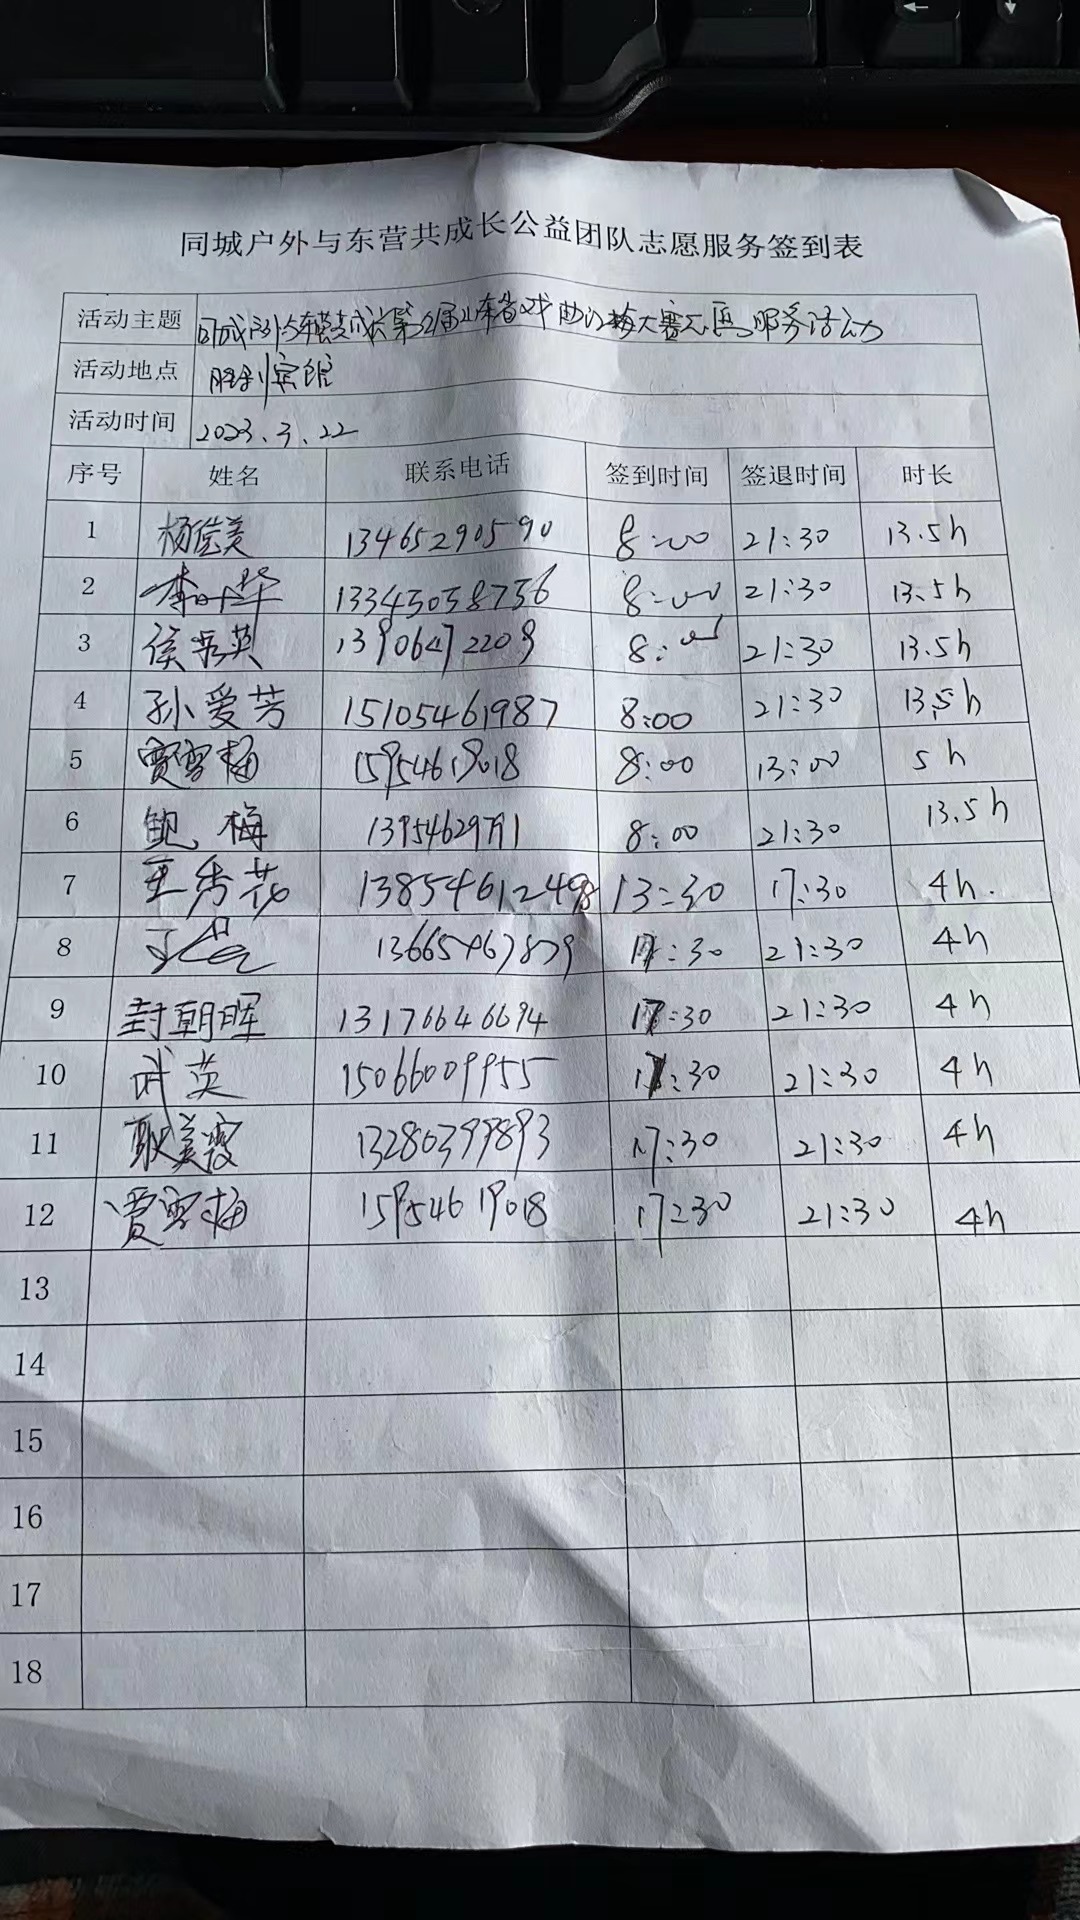 同城户外与东营共成长公益团队志愿服务签到表
活动主题 同城户外与东营共成长第12届山东省戏曲红梅大赛志愿服务活动
活动地点 胜利宾馆
活动时间 2023.3.22
序号 姓名 联系电话 签到时间 签退时间 时长
1 杨信美 13465290590 8:00 21:30 13.5h
2 李叶华 13345058756 8:00 21:30 13.5h
3 侯秀英 13906472209 8:00 21:30 13.5h
4 孙爱芳 15105461987 8:00 21:30 13.5h
5 贾雪梅 15954619018 8:00 13:00 5h
6 鲍梅 13954629791 8:00 21:30 13.5h
7 王秀花 13854612498 13:30 17:30 4h.
8 13665467879 17:30 21:30 4h
9 封朝晖 13176646694 17:30 21:30 4h
10 武英 15066009955 17:30 21:30 4h
11 耿美霞 13280399893 17:30 21:30 4h
12 贾雪梅 15954619018 17:30 21:30 4h
13
14
15
16
17
18